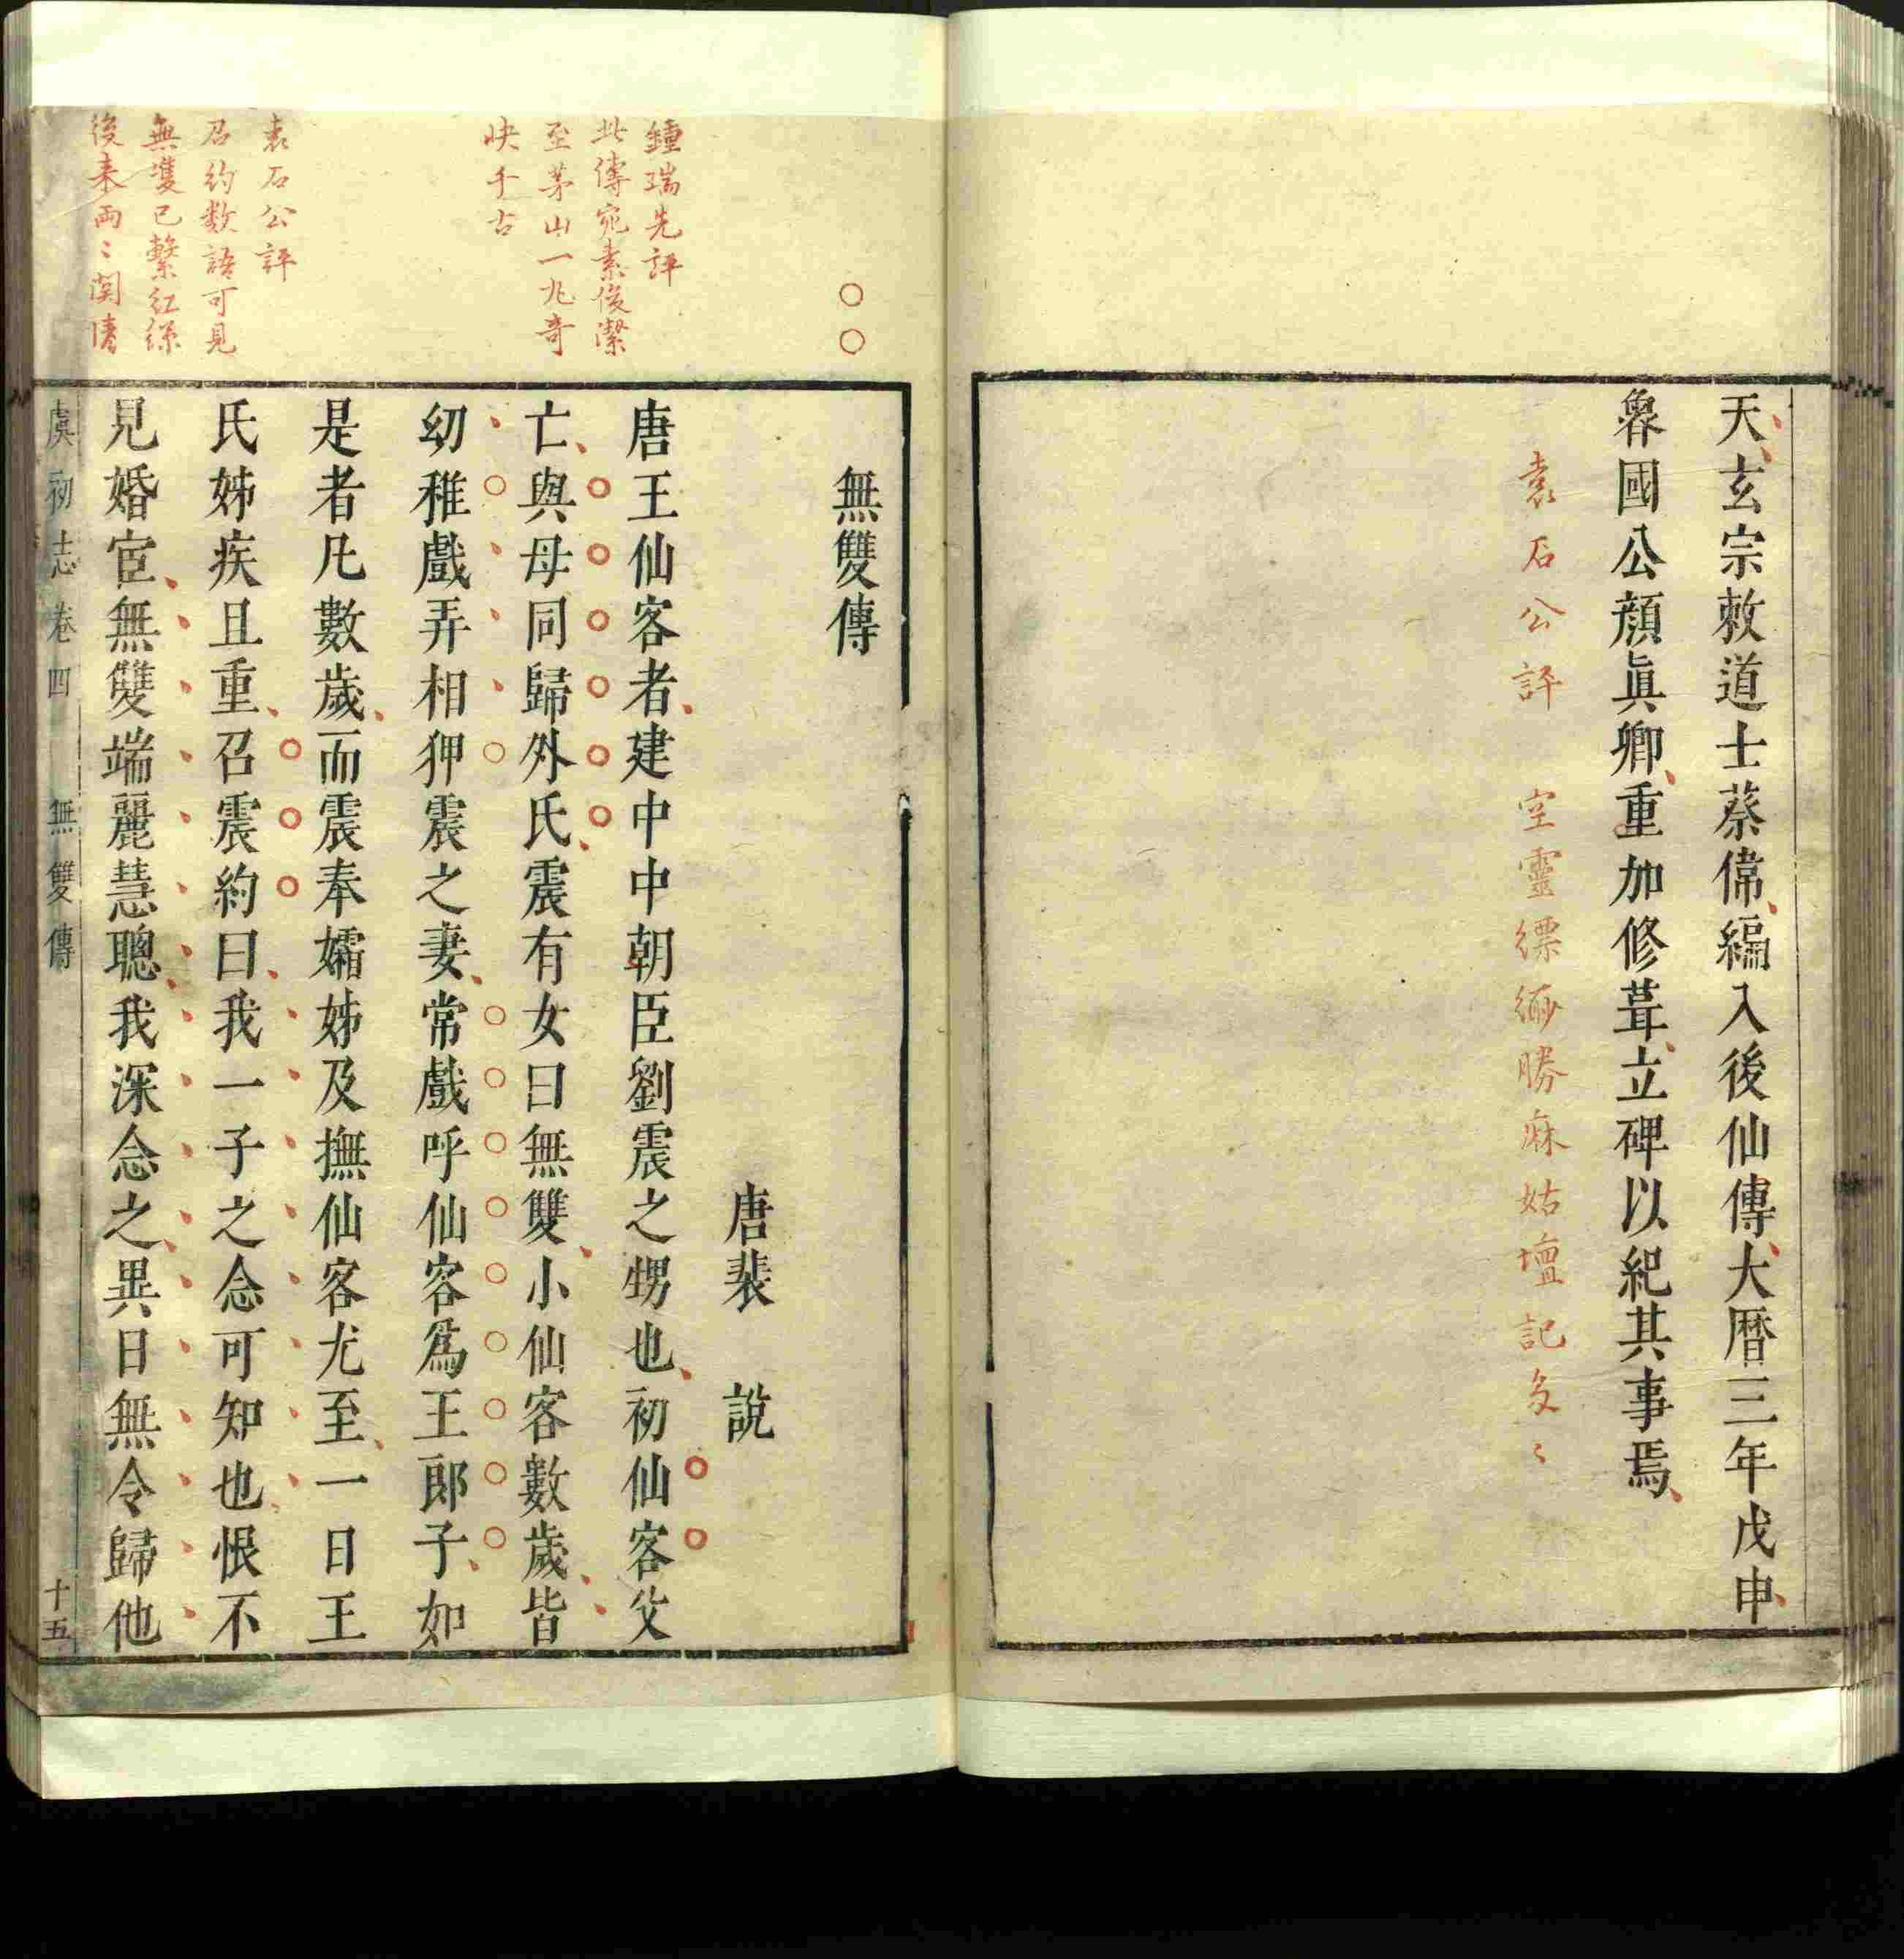 天玄宗敕道士蔡偉編入後仙傳大曆三年戊申
魯國公顔眞卿重加修葺立碑以紀其事焉
袁石公評 空靈縹緲勝麻姑壇記多〻
無雙傳
唐裴 說
鍾瑞先評
此傳宛素俊潔
至茅山一兆奇
快千古
唐王仙客者建中中朝臣劉震之甥也初仙客父
亡與母同歸外氏震有女曰無雙小仙客數歲皆
幼稚戲弄相狎震之妻常戲呼仙客爲王郎子如
是者凡數歲而震奉孀姊及撫仙客尤至一日王
氏姊疾且重召震約曰我一子之念可知也恨不
見婚宦無雙端麗慧聰我深念之異日無令歸他
袁石公評
召約数語可見
無雙已繫紅絲
後来両〻関情
虞初志卷四 無雙傳 十五